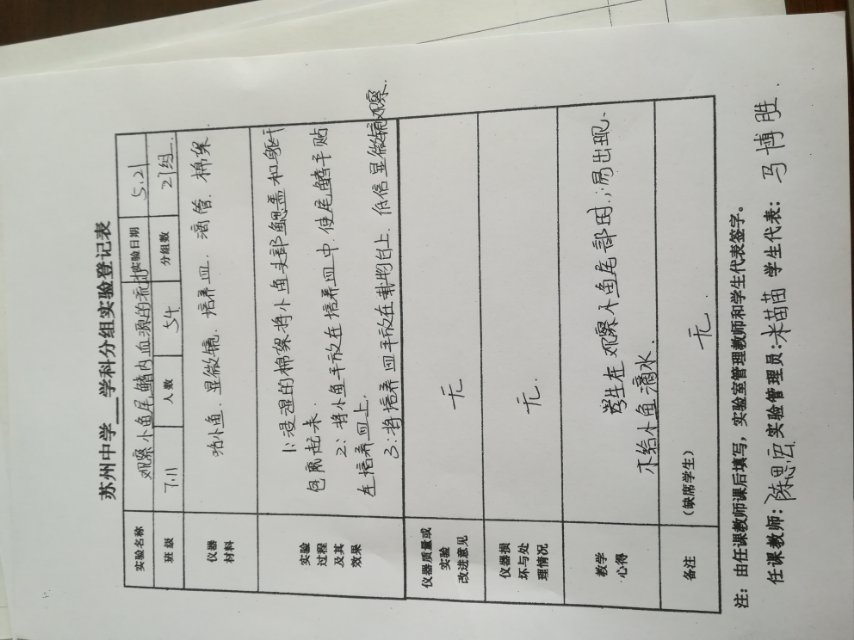 苏州中学___学科分组实验登记表
实验名称 观察小鱼尾鳍内血液的流动 实验日期 5.21
班级 7.11 人数 54 分组数 21组
仪器材料 活小鱼、显微镜、培养皿、滴管、棉絮
实验过程及其效果
1:浸湿的棉絮将小鱼头部鳃盖和躯干
包裹起来
2:将小鱼平放在培养皿中,使尾鳍平贴
在培养皿上
3:将培养皿平放在载物台上,低倍显微镜观察.
仪器质量或实验改进意见 无
仪器损坏与处理情况 无.
教学心得
学生在观察小鱼尾部时,易出现.
不给小鱼滴水.
备注 (缺席学生) 无.
注:由任课教师课后填写,实验室管理教师和学生代表签字。
任课教师:陈思宏 实验管理员:米苗苗 学生代表:马博胜.